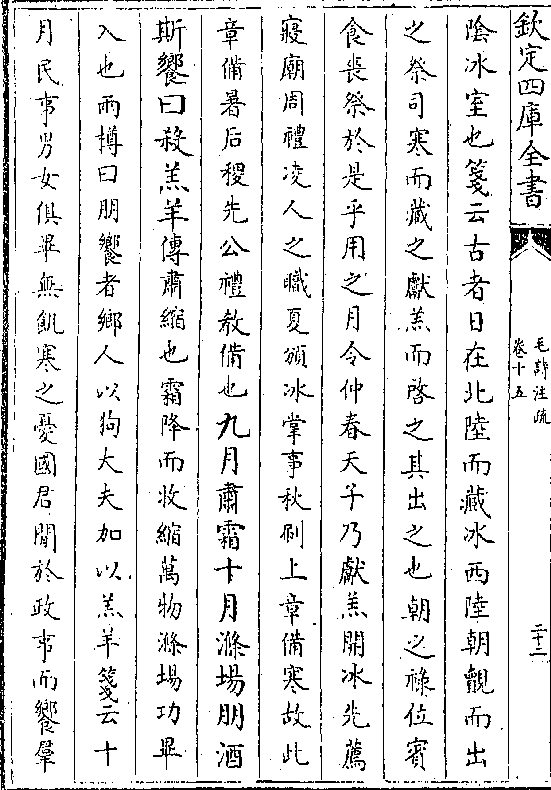 欽定四庫全書
毛詩注疏
卷十五
二十三
陰冰室也箋云古者日在北陸而藏冰西陸朝覿而出
之祭司寒而藏之獻羔而啓之其出之也朝之祿位賓
食喪祭於是乎用之月令仲春天子乃獻羔開冰先薦
寢廟周禮凌人之職夏頒冰掌事秋刷上章備寒故此
章備暑后稷先公禮教備也九月肅霜十月滌場朋酒
斯饗曰殺羔羊傳肅縮也霜降而收縮萬物滌場功畢
入也兩樽曰朋饗者鄉人以狗大夫加以羔羊箋云十
月民事男女俱畢無飢寒之憂國君閒於政事而饗羣